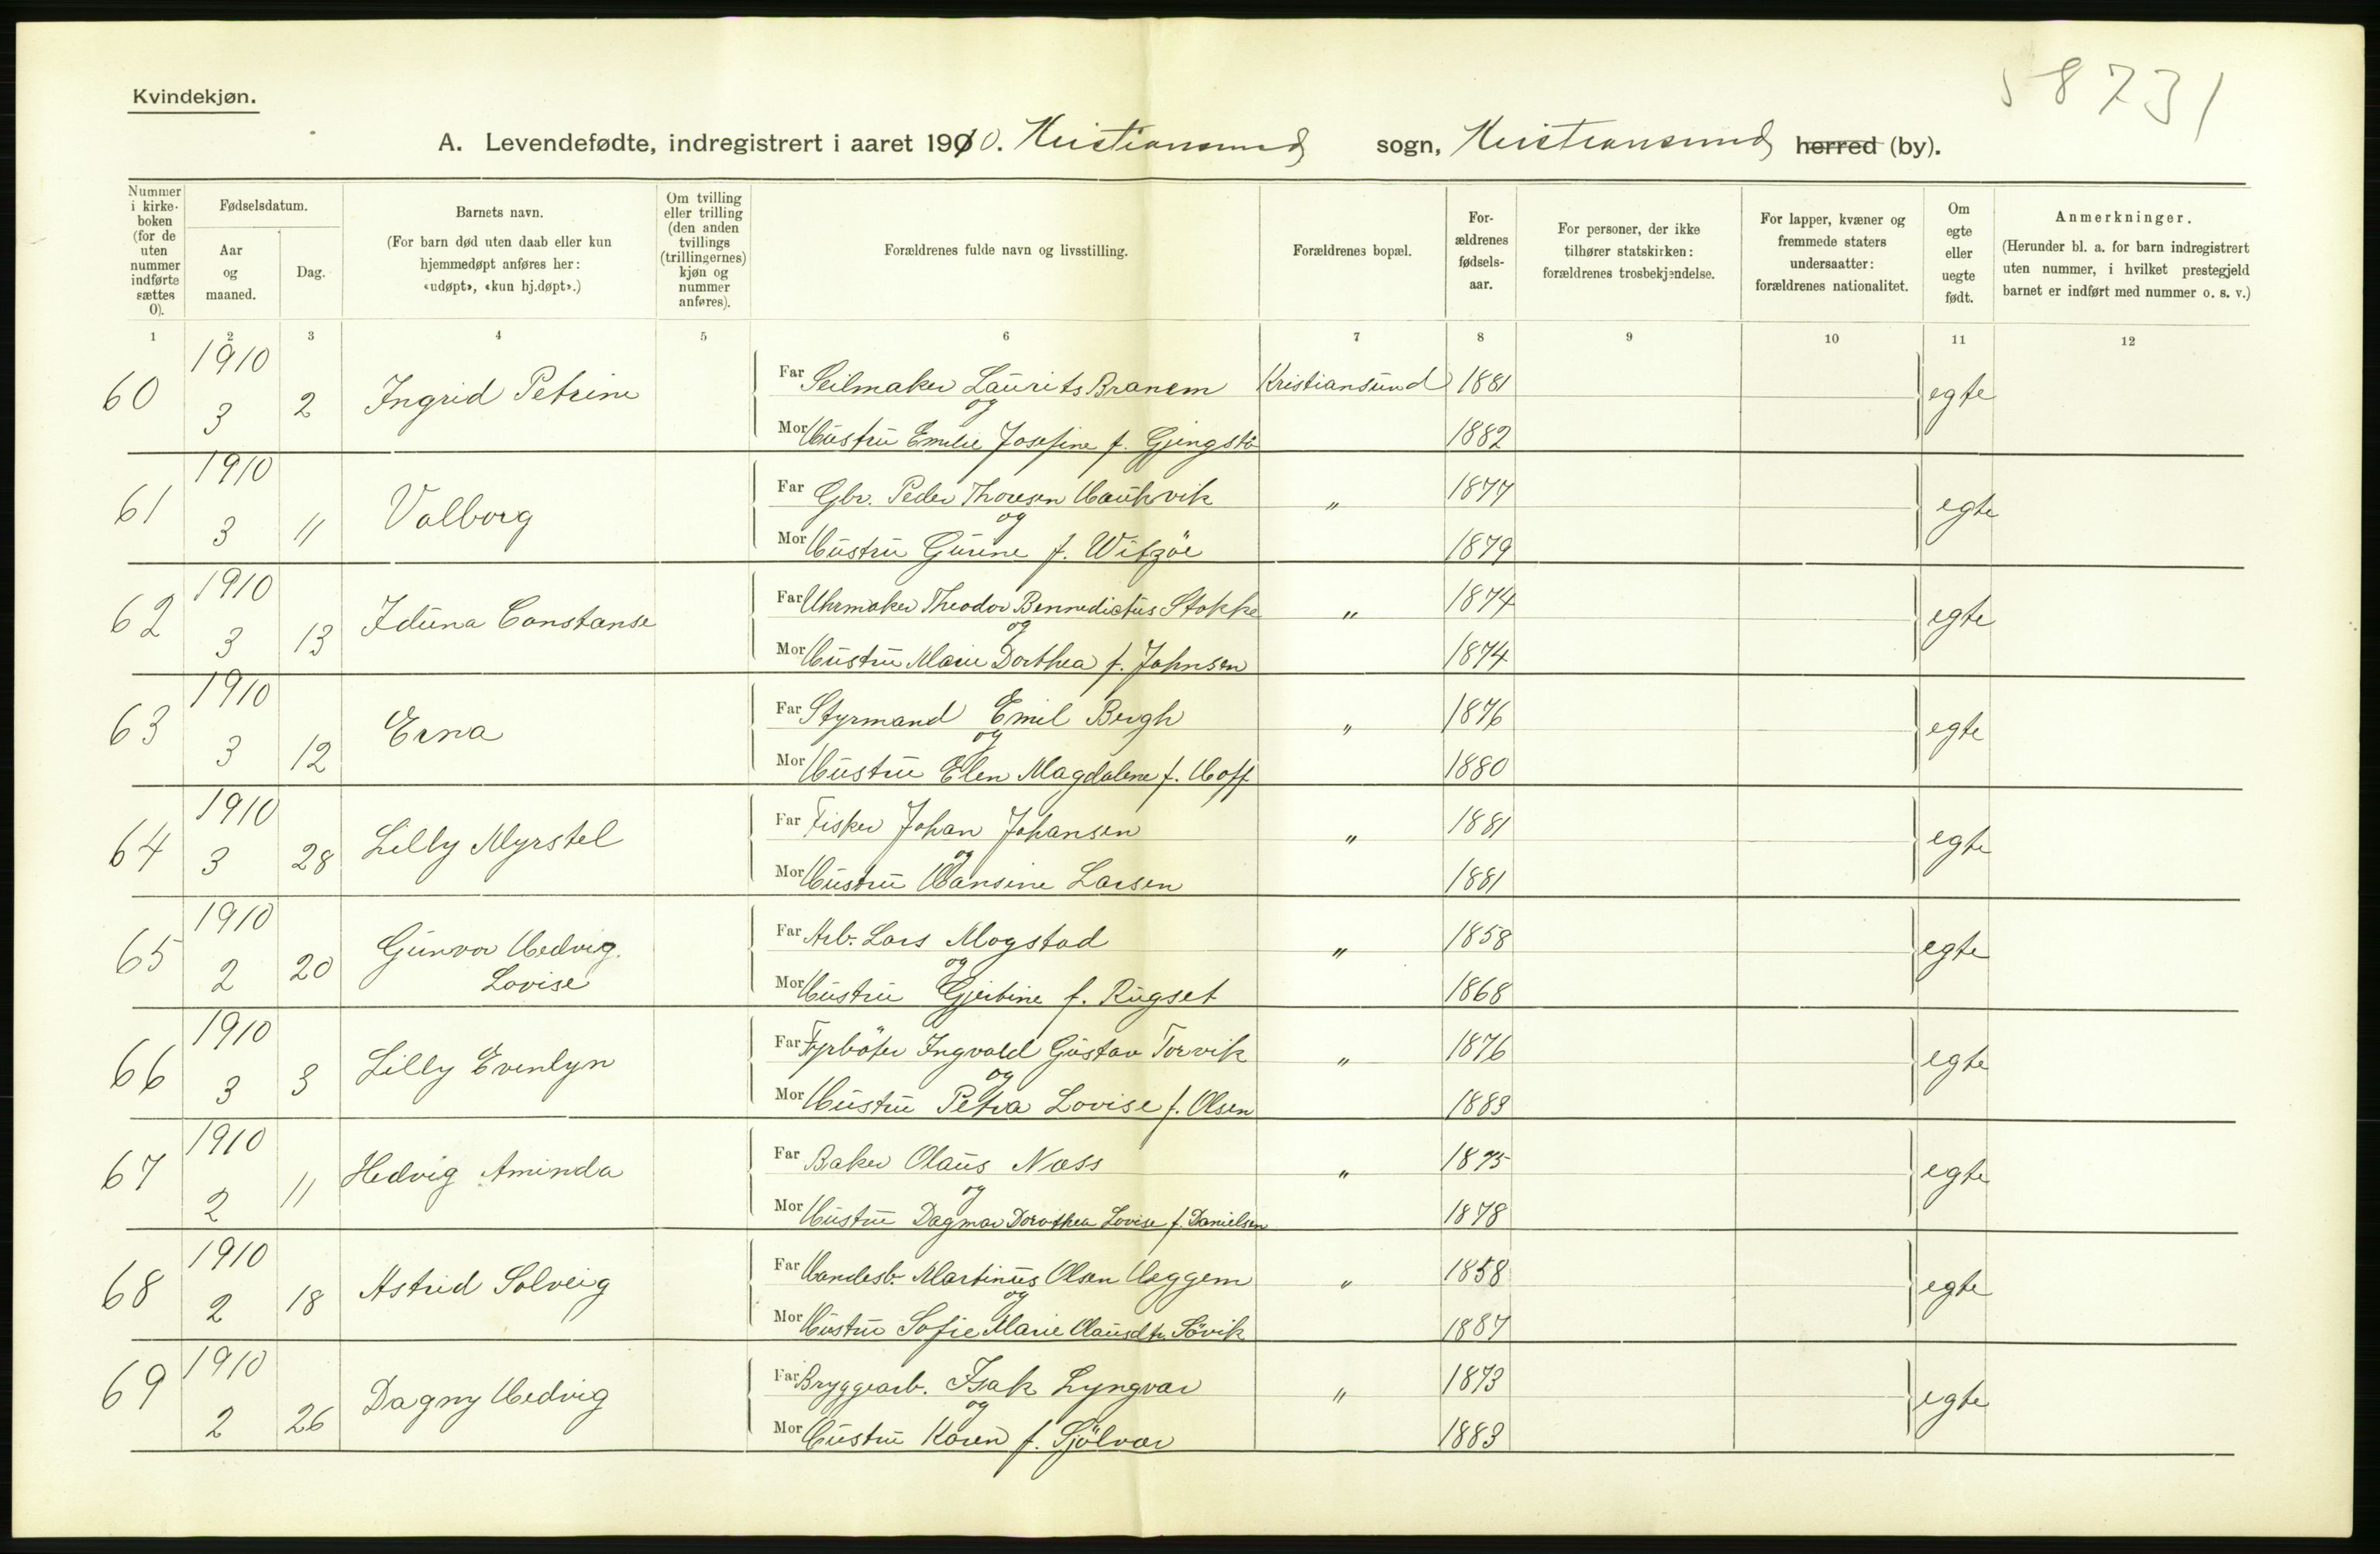 58731
Kvindekjøn.
A. Levendefødte, indregistrert i aaret 1910. Kristiansund sogn, Kristiansund herred (by).
Nummer i kirkeboken (for de uten nummer indførte sættes 0).
Fødselsdatum.
Aar og maaned.
Dag.
Barnets navn.
(For barn død uten daab eller kun hjemmedøpt anføres her: «udøpt», «kun hj.døpt».)
Om tvilling eller trilling (den anden tvillings (trillingernes) kjøn og nummer anføres).
Forældrenes fulde navn og livsstilling.
Forældrenes bopæl.
Forældrenes fødselsaar.
For personer, der ikke tilhører statskirken: forældrenes trosbekjendelse.
For lapper, kvæner og fremmede staters undersaatter: forældrenes nationalitet.
Om egte eller uegte født.
Anmerkninger.
(Herunder bl. a. for barn indregistrert uten nummer, i hvilket prestegjeld barnet er indført med nummer o. s. v.)
1 2 3 4 5 6 7 8 9 10 11 12
60 1910 3 2 Ingrid Petrine Far Seilmaker Laurits Branem Kristiansund 1881 egte
og
Mor Hustru Emilie Josefine f. Gjengstø 1882
61 1910 3 11 Valborg Far Gbr. Peder Thoresen Haukvik " 1877 egte
og
Mor Hustru Gurine f. Witzöe 1879
62 1910 3 13 Iduna Constanse Far Uhrmaker Theodor Bennedictus Stokke " 1874 egte
og
Mor Hustru Marie Dorthea f. Johnsen 1874
63 1910 3 12 Erna Far Styrmand Emil Bergh " 1876 egte
og
Mor Hustru Elen Magdalene f. Hoff 1880
64 1910 3 28 Lilly Myrstel Far Fisker Johan Johansen " 1881 egte
og
Mor Hustru Hansine Larsen 1881
65 1910 2 20 Gunvor Hedvig Lovise Far Arb. Lars Mogstad " 1858 egte
og
Mor Hustru Gjertine f. Rugset 1868
66 1910 3 3 Lilly Evenlyn Far Fyrböter Ingvald Gustav Torvik " 1876 egte
og
Mor Hustru Petra Lovise f. Olsen 1883
67 1910 2 11 Hedvig Aminda Far Baker Olaus Næss " 1875 egte
og
Mor Hustru Dagmar Dorothea Lovise f. Danielsen 1878
68 1910 2 18 Astrid Solveig Far Handesb. Martinus Olsen Heggem " 1858 egte
og
Mor Hustru Sofie Marie Olausdtr. Sövik 1887
69 1910 2 26 Dagny Hedvig Far Bryggearb. Isak Lyngvær " 1873 egte
og
Mor Hustru Karen f. Sjölvær 1883